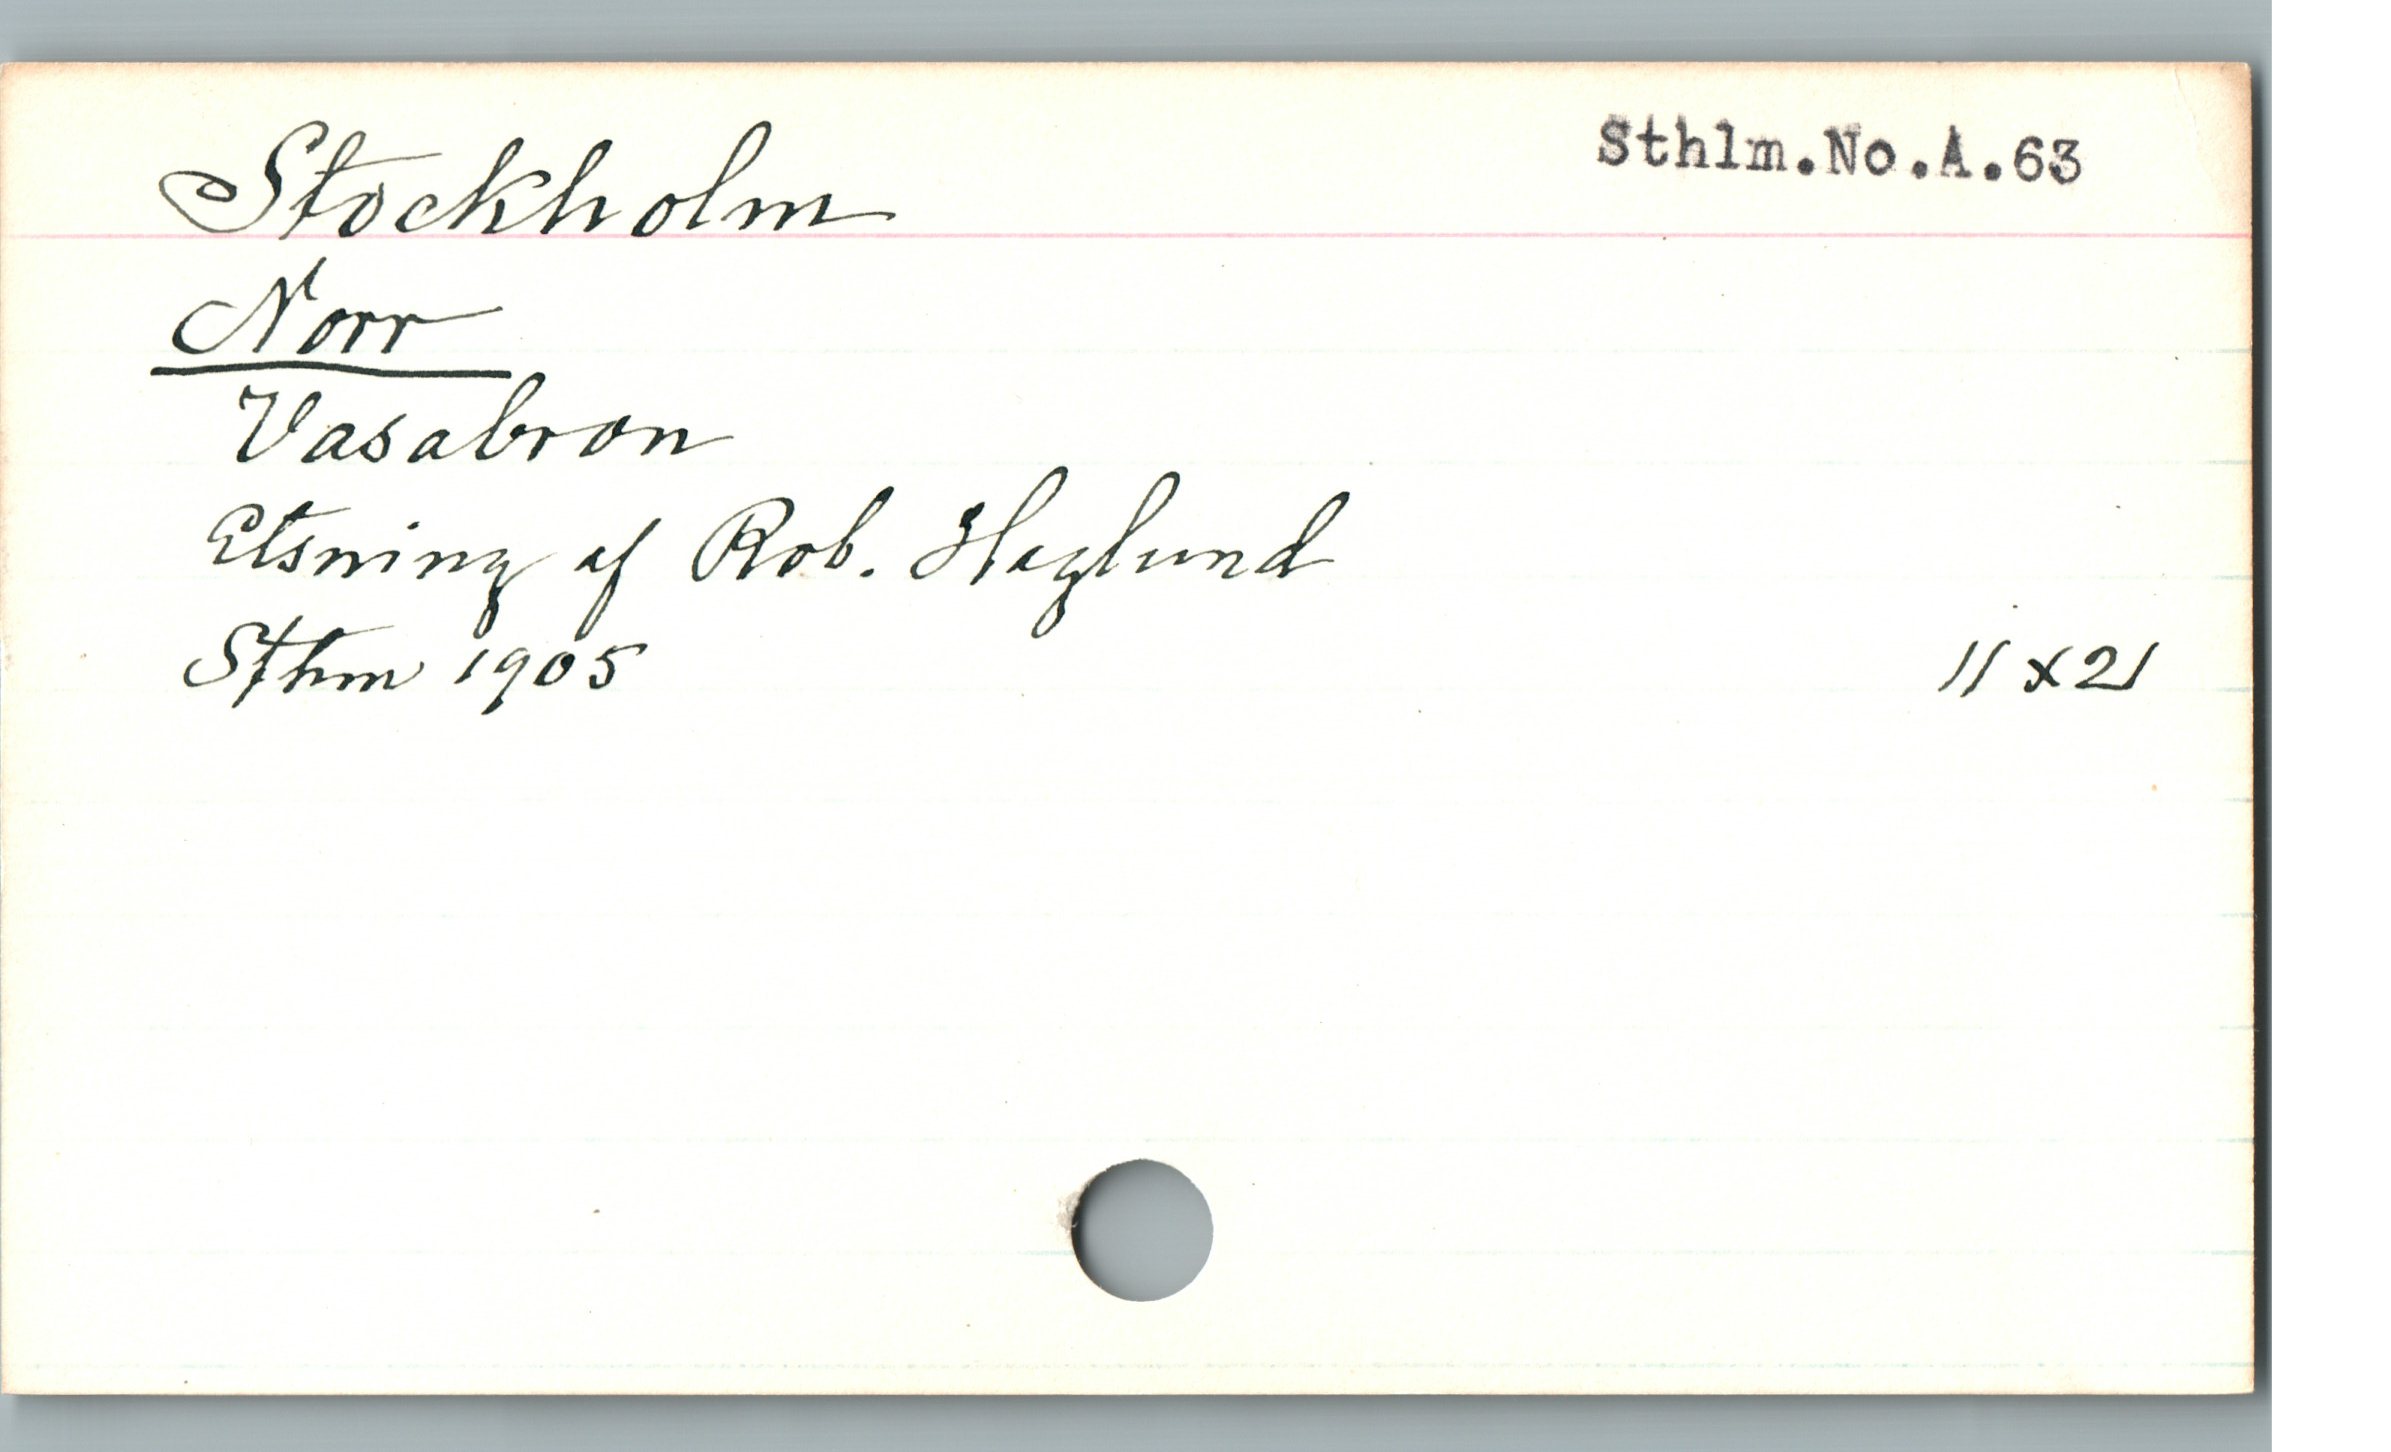 Stockholm
Sthlm.No.A.63
Norr
Vasabron
Etsning af Rob. Haglund
Sthm 1905
11 x 21